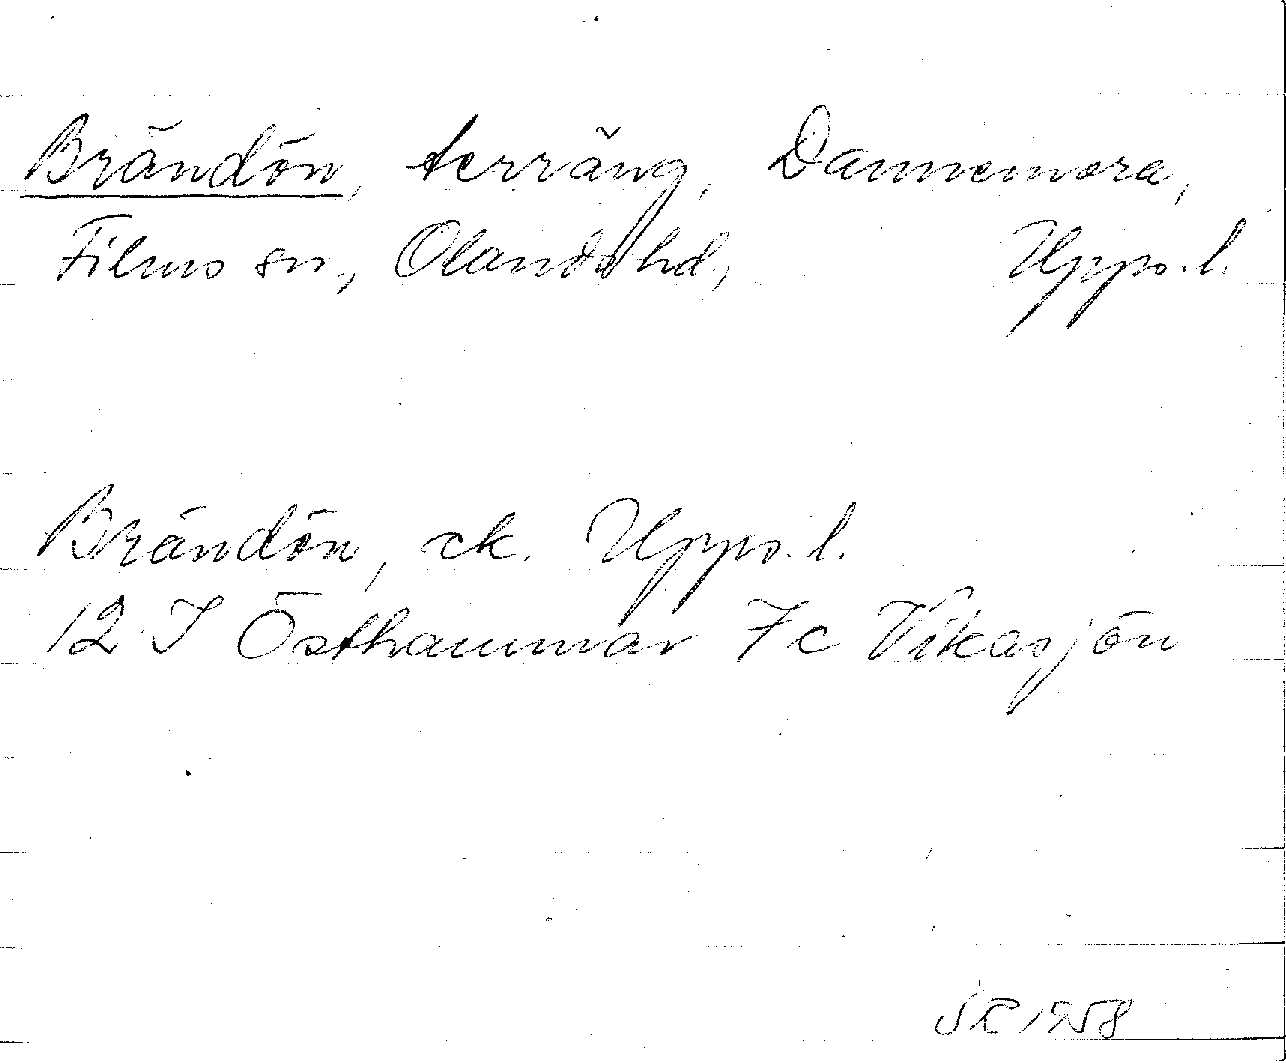 Brändön, terräng, Dannemora,
Films sn, Olands hd, Upps. l.
Brändön, ek. Upps. l.
12 I Östhammar 7 c Vikasjön
1958